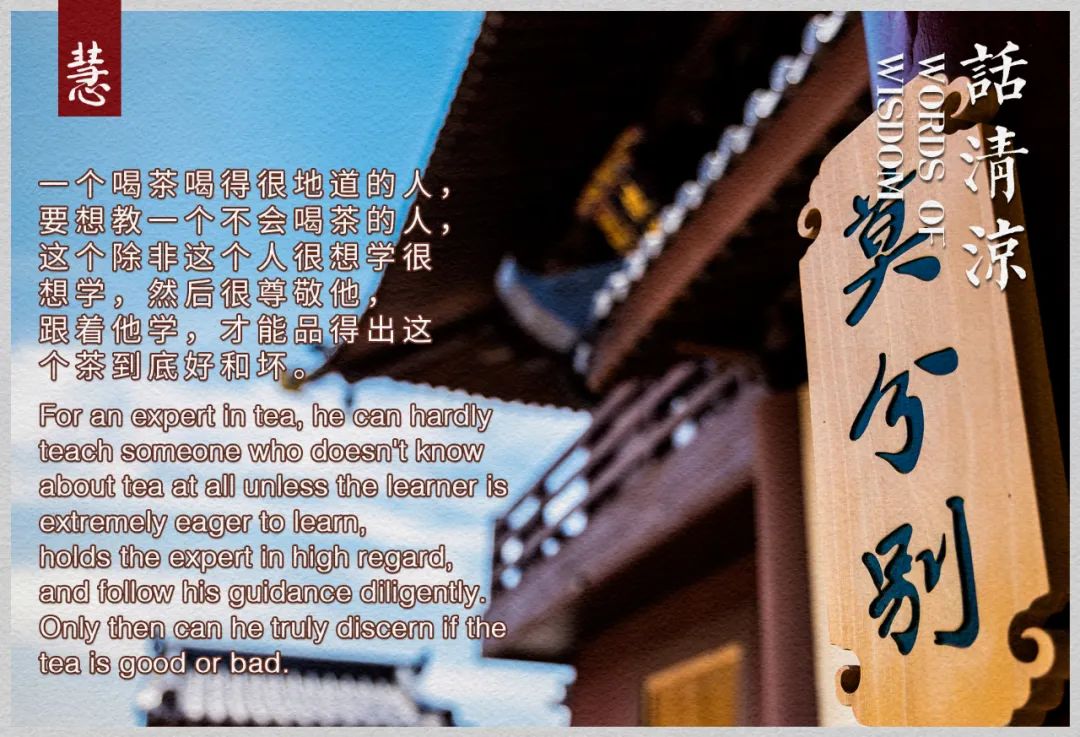 慧
話清涼
WORDS OF
WISDOM
一个喝茶喝得很地道的人，
要想教一个不会喝茶的人，
这个除非这个人很想学很
想学，然后很尊敬他，
跟着他学，才能品得出这
个茶到底好和坏。
For an expert in tea, he can hardly
teach someone who doesn't know
about tea at all unless the learner is
extremely eager to learn,
holds the expert in high regard,
and follow his guidance diligently.
Only then can he truly discern if the
tea is good or bad.
莫分别